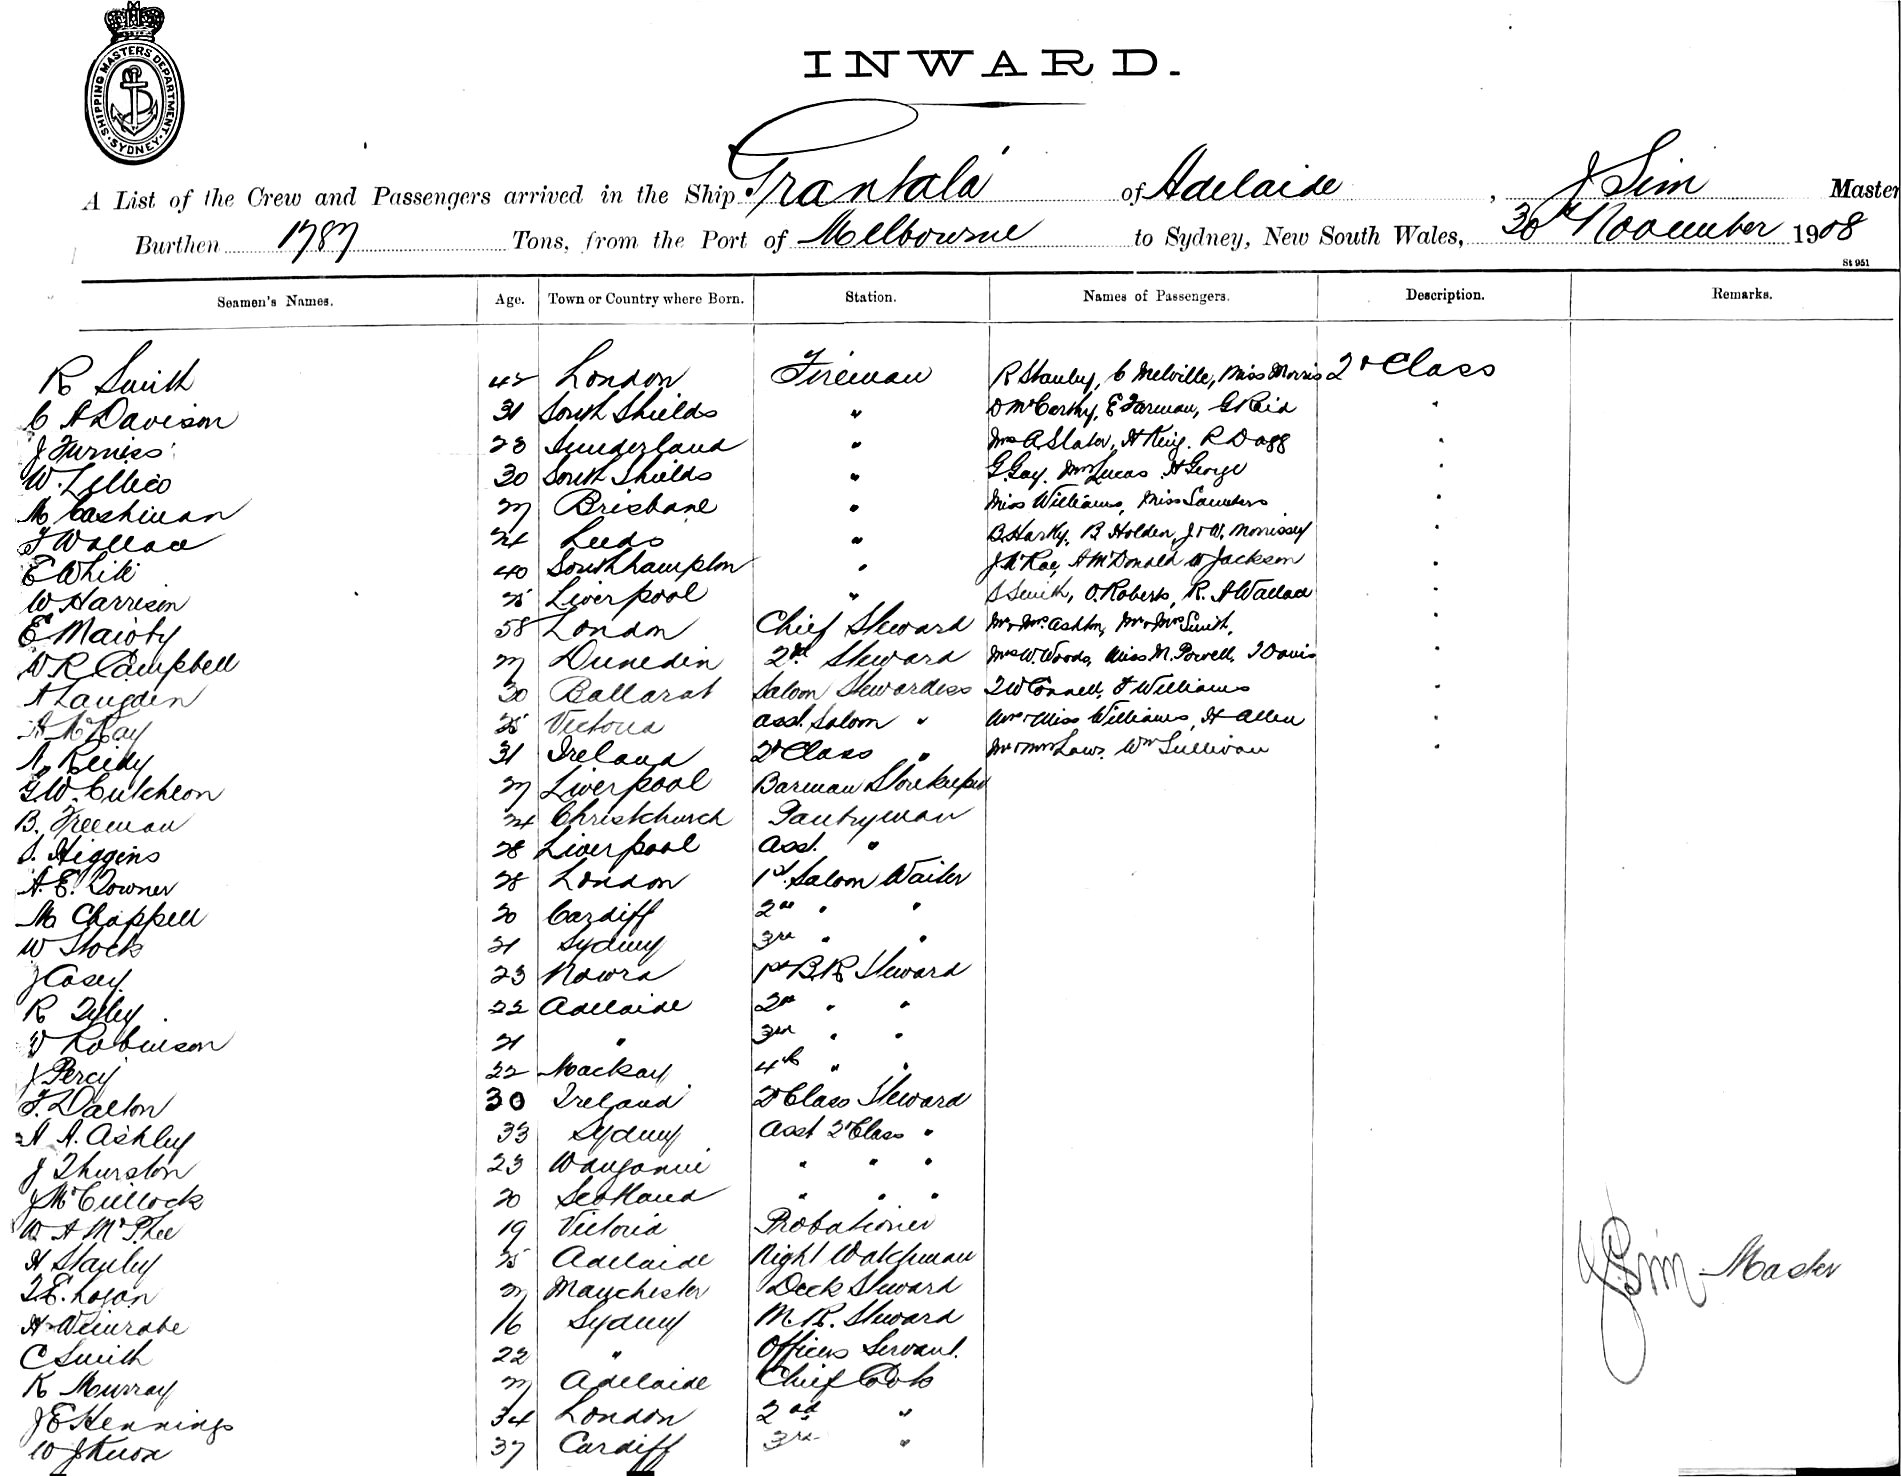 SHIPPING MASTERS DEPARTMENT. SYDNEY.
INWARD.
A List of the Crew and Passengers arrived in the Ship Grantala of Adelaide, J Sim Master
Burthen 1787 Tons, from the Port of Melbourne to Sydney, New South Wales, 30th November 1908
St 951
Seamen's Names. Age. Town or Country where Born. Station. Names of Passengers. Description. Remarks.
R Smith 42 London Fireman R Stanley, C Melville, Miss Morris 2d Class
C A Davison 31 South Shields " D McCarthy, E Farman, G Raid "
J Furniss 23 Sunderland " Mrs A Slator, H King. R Dagg "
W. Lillico 30 South Shields " G. Gay. Mrs Lucas. H George "
M Cashman 27 Brisbane " Miss Williams, Miss Saunders "
F Wallace 24 Leeds " B Harky, B Holden, J & W. Morrissey "
E White 40 Southhampton " J McRae, A McDonald W Jackson "
W Harrison 25 Liverpool " S Smith, O. Roberts, R. A Wallace "
E Maioty 58 London Chief Steward Mr & Mrs Ashton, Mr & Mrs Smith, "
W R Campbell 27 Dunedin 2nd Steward Mrs W. Woods, Miss M. Powell, J Davis "
A Langden 30 Ballarat Saloon Stewardess J W Connell, F Williams "
A McKay 25 Victoria asst. Saloon " Mrs & Miss Williams, H Allen "
A. Reidy 31 Ireland 2d Class " Mr & Mrs Law. Wm Sullivan "
G. W. Cutcheon 27 Liverpool Barman Storekeeper
B. Freeman 24 Christchurch Pantryman
S. Higgins 28 Liverpool Asst. "
A. E. Downer 28 London 1st. Saloon Waiter
M Chappell 20 Cardiff 2nd " "
W Stock 21 Sydney 3rd " "
J Casey. 23 Nowra 1st B.R. Steward
R Tyley. 22 Adelaide 2nd " "
Robinson 21 " 3rd " "
J Percy 22 Mackay 4th " "
F. Dalton 30 Ireland 2d Class Steward
A. Ashley 33 Sydney Asst 2d Class "
J Thurston 23 Wanganui " " "
J McCullock 20 Scotland " " "
W A McPhee 19 Victoria Probationer
H Stanley 25 Adelaide Night Watchman
J. E. Logan 27 Manchester Deck Steward
H Weinrabe 16 Sydney M. R. Steward
C Smith 22 " Officers Servant.
R Murray 27 Adelaide Chief Cook
J E Hennings 34 London 2nd "
W J Knox 37 Cardiff 3rd "
J Sim Master